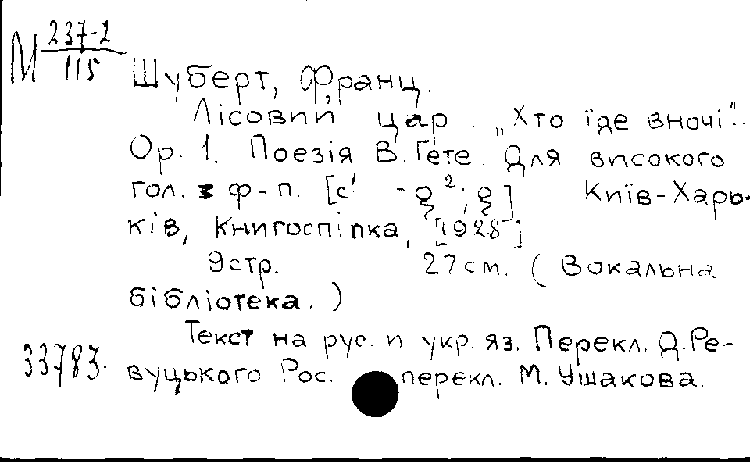 М 237-2
115
Шуберт, Франц.
Лісовий цар. „Хто їде вночі".
Ор. 1. Поезія В. Ґете. Для високого
гол. з ф-п. [с¹ - g²; g] Київ-Харь-
ків, Книгоспілка, [1928]
9стр. 27см. (Вокальна
бібліотека.)
Текст на рус. и укр. яз. Перекл. Д. Ре-
вуцького Рос. перекл. М. Ушакова.
33783.